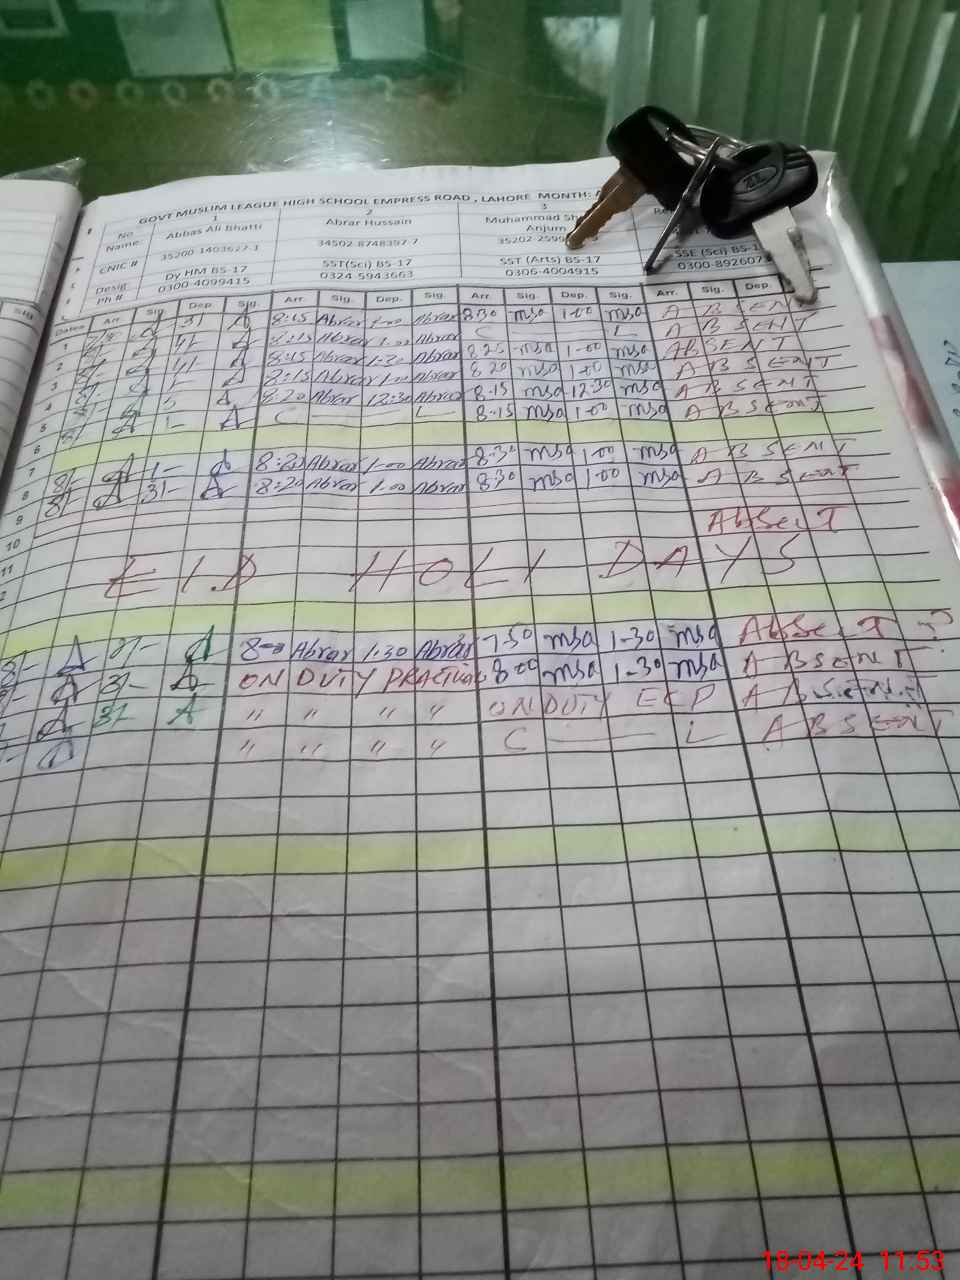 GOVT MUSLIM LEAGUE HIGH SCHOOL EMPRESS ROAD , LAHORE MONTH: A
No 1 2 3
Name: Abbas Ali Bhatti Abrar Hussain Muhammad Sh
Anjum
CNIC # 35200-1403527-1 34502-8748397-7 35202-2599
Desig: Dy HM BS-17 SST(Sci) BS-17 SST (Arts) BS-17 SSE (Sci) BS-1
Ph # 0300-4099415 0324 5943663 0306-4004915 0300-8926073
Dates Arr. Sig. Dep. Sig. Arr. Sig. Dep. Sig. Arr. Sig. Dep. Sig. Arr. Sig. Dep.
8:15 Abrar 1-00 Abrar 830 msa 1-00 msa ABSENT
1 8:15 Abrar 1-00 Abrar C L ABSENT
2 8:15 Abrar 1-30 Abrar 8 25 msa 1-00 msa ABSENT
3 8:15 Abrar 1-00 Abrar 8 20 msa 1-00 msa ABSENT
4 8:20 Abrar 12:30 Abrar 8-15 msa 12-30 msa ABSENT
5 C L 8-15 msa 1-00 msa ABSENT
6
7 8:20 Abrar 1-00 Abrar 8-30 msa 1-00 msa ABSENT
8 8:20 Abrar 1-00 Abrar 830 msa 1-00 msa ABSENT
9
10 AbSenT
11 EID HOLI DAYS
2
Abrar 1.30 Abrar 7-50 msa 1-30 msa AbSenT ?
ON DUTY PRACTICAL 8-00 msa 1-30 msa ABSENT
" " " " ON DUTY ABSENT
" " " " C L ABSENT
18-04-24 11:53